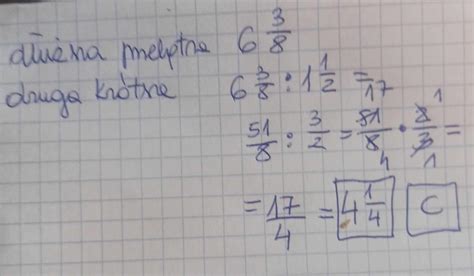 dłuższa 6 3/8
druga krótsza 6 3/8 : 1 1/2 =
51/8 : 3/2 = 51/8 · 2/3 =
17 1
4 1
= 17/4 = 4 1/4 C